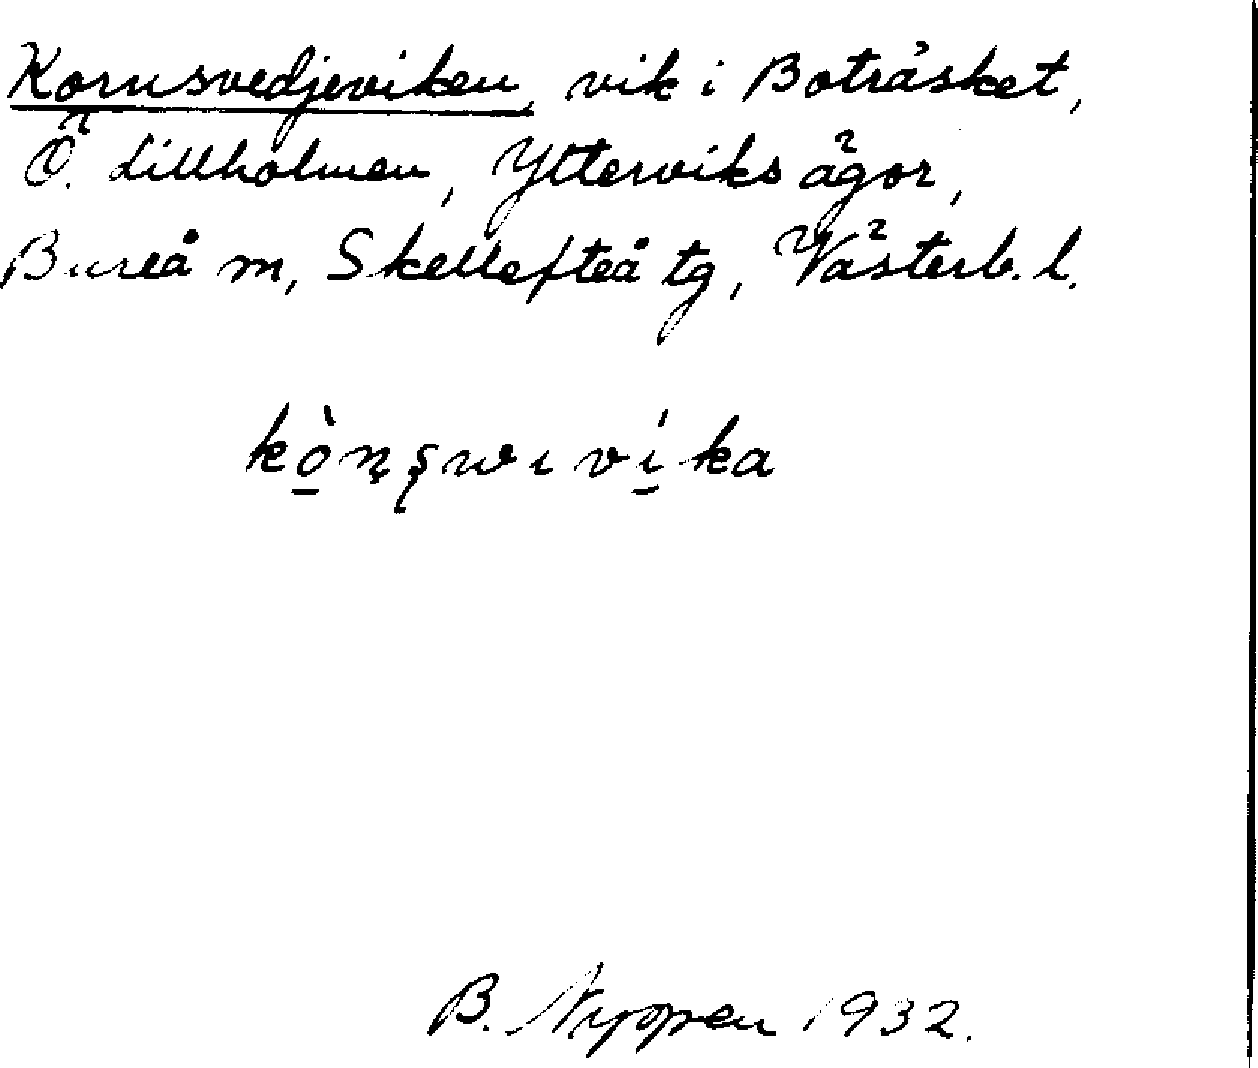 Kornsvedjeviken, vik i Boträsket,
Ö. Lillholmen, Ytterviks ägor,
Bureå m, Skellefteå tg, Västerb. l.
kò̱ṇʂwı ví̱ka
B. Nyppen 1932.